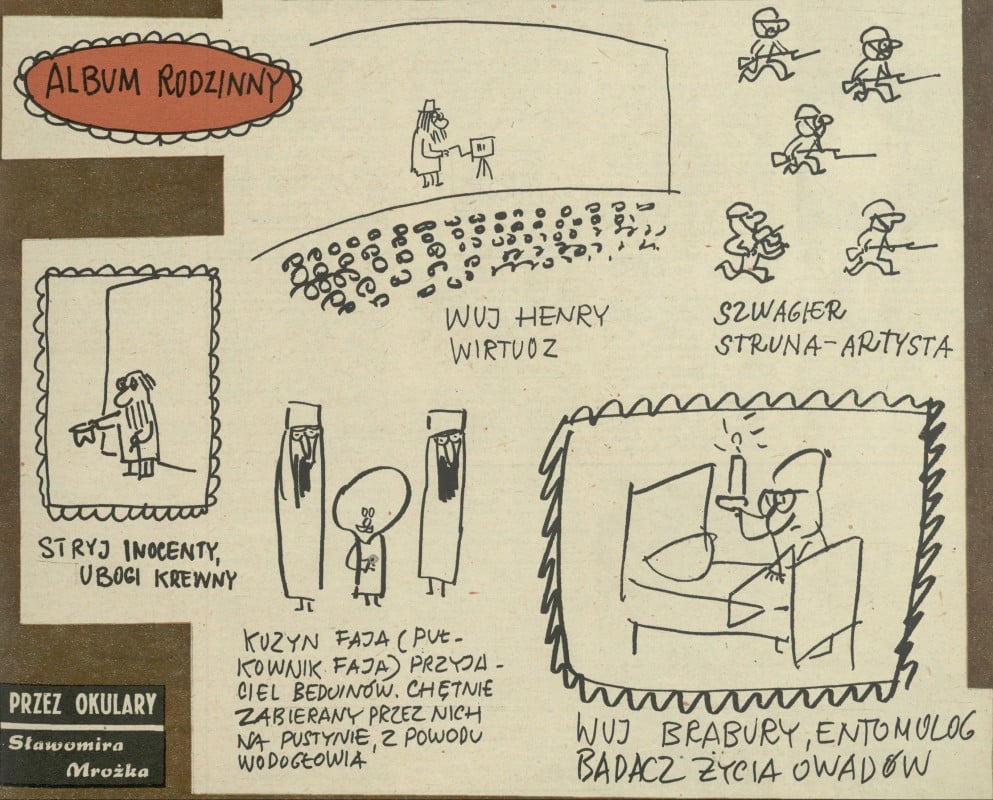 ALBUM RODZINNY
WUJ HENRY
WIRTUOZ
SZWAGIER
STRUNA-ARTYSTA
STRYJ INOCENTY,
UBOGI KREWNY
KUZYN FAJA (PUŁ-
KOWNIK FAJA) PRZYJA-
CIEL BEDUINÓW. CHĘTNIE
ZABIERANY PRZEZ NICH
NA PUSTYNIE, Z POWODU
WODOGŁOWIA
WUJ BRABURY, ENTOMOLOG
BADACZ ŻYCIA OWADÓW
PRZEZ OKULARY
Sławomira
Mrożka